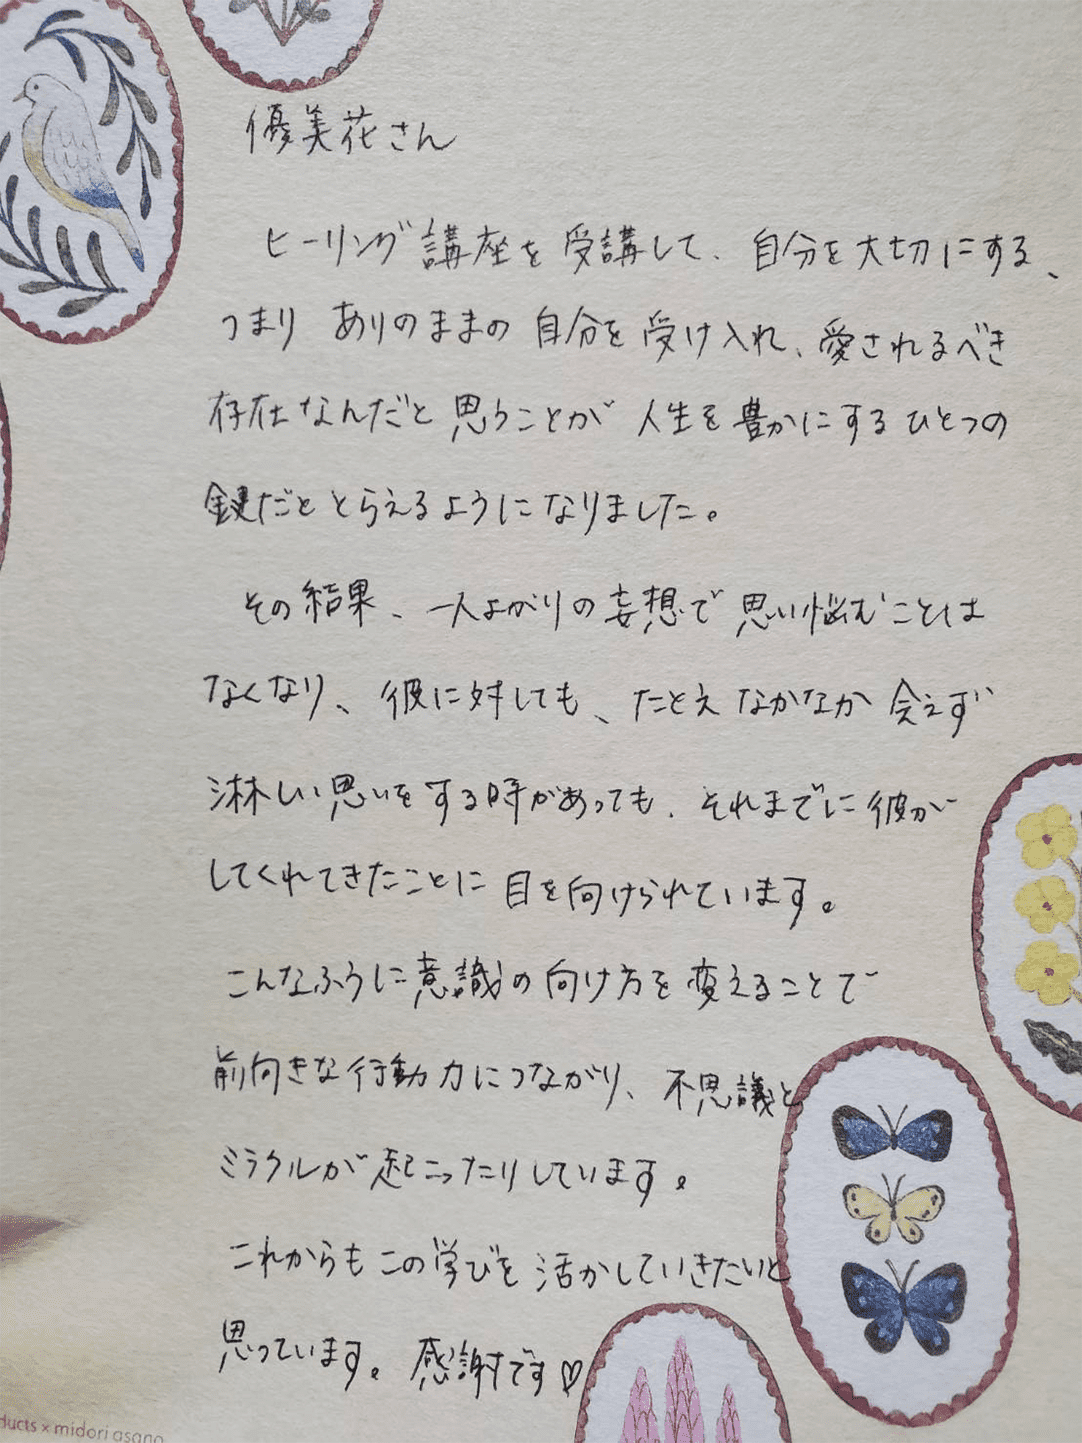 優美花さん
ヒーリング講座を受講して、自分を大切にする、
つまり ありのままの自分を受け入れ、愛されるべき
存在なんだと思うことが人生を豊かにするひとつの
鍵だととらえるようになりました。
その結果、一人よがりの妄想で思い悩むことは
なくなり、彼に対しても、たとえなかなか会えず
淋しい思いをする時があっても、それまでに彼が
してくれてきたことに目を向けられています。
こんなふうに意識の向け方を変えることで
前向きな行動力につながり、不思議と
ミラクルが起こったりしています。
これからもこの学びを活かしていきたいと
思っています。感謝です♡
ducts × midori asano